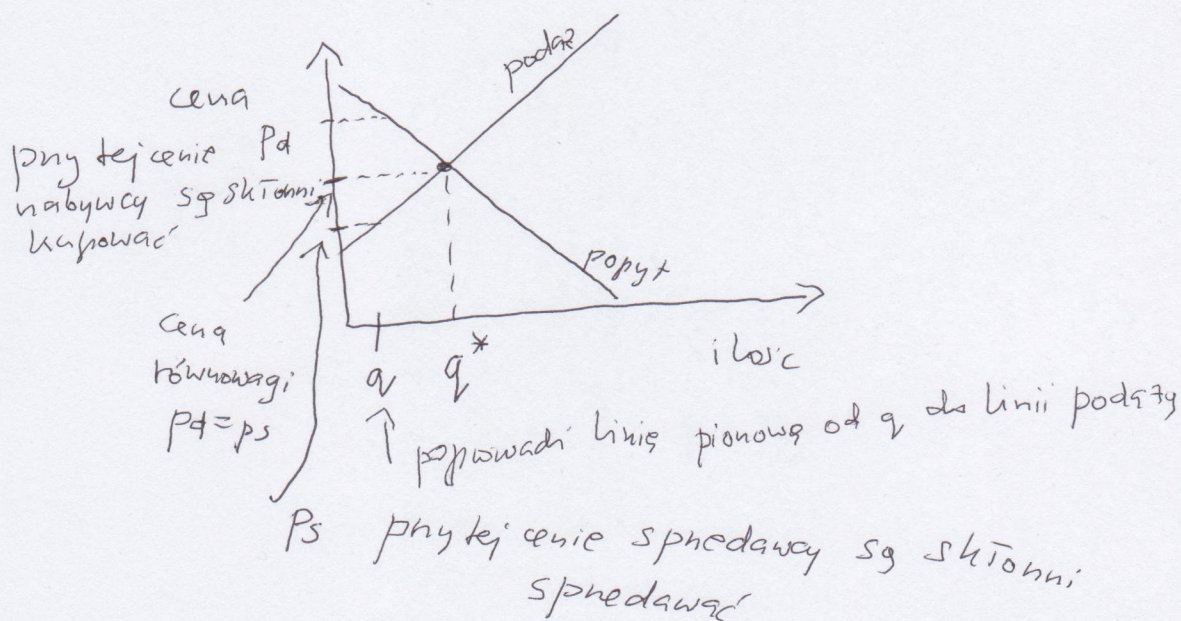 podaż
cena
Pd
przy tej cenie
nabywcy są skłonni
kupować
popyt
cena
równowagi
pd=ps
q
q*
ilość
poprowadź linię pionową od q do linii podaży
Ps przy tej cenie sprzedawcy są skłonni
sprzedawać